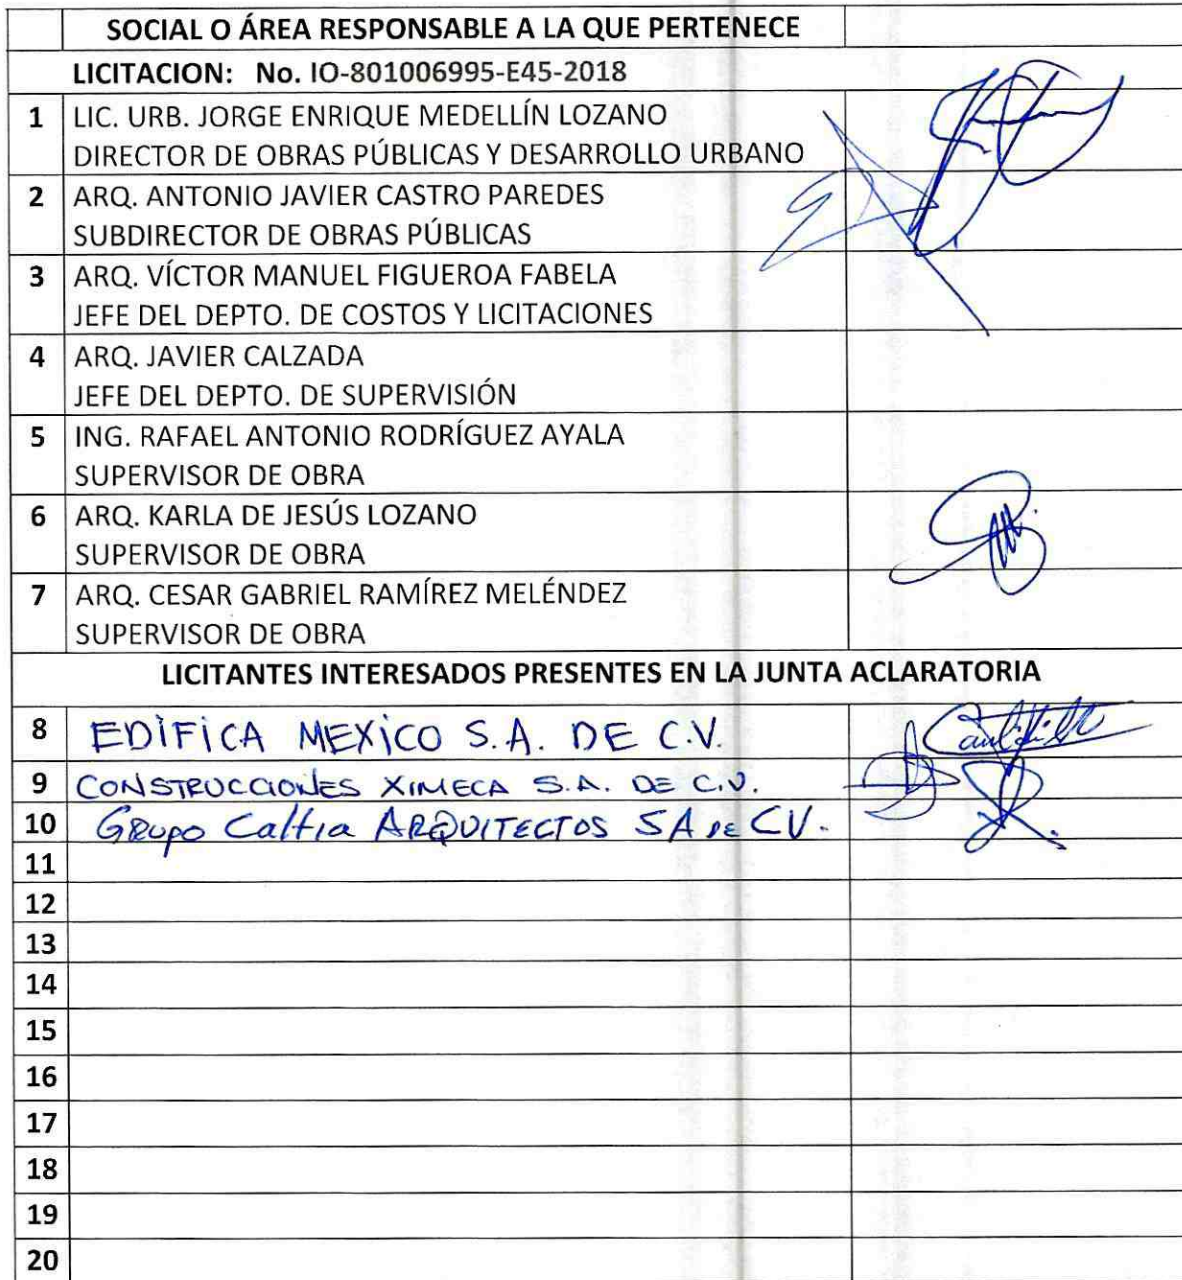 SOCIAL O ÁREA RESPONSABLE A LA QUE PERTENECE
LICITACION: No. IO-801006995-E45-2018
1 LIC. URB. JORGE ENRIQUE MEDELLÍN LOZANO
DIRECTOR DE OBRAS PÚBLICAS Y DESARROLLO URBANO
2 ARQ. ANTONIO JAVIER CASTRO PAREDES
SUBDIRECTOR DE OBRAS PÚBLICAS
3 ARQ. VÍCTOR MANUEL FIGUEROA FABELA
JEFE DEL DEPTO. DE COSTOS Y LICITACIONES
4 ARQ. JAVIER CALZADA
JEFE DEL DEPTO. DE SUPERVISIÓN
5 ING. RAFAEL ANTONIO RODRÍGUEZ AYALA
SUPERVISOR DE OBRA
6 ARQ. KARLA DE JESÚS LOZANO
SUPERVISOR DE OBRA
7 ARQ. CESAR GABRIEL RAMÍREZ MELÉNDEZ
SUPERVISOR DE OBRA
LICITANTES INTERESADOS PRESENTES EN LA JUNTA ACLARATORIA
8 EDIFICA MEXICO S.A. DE C.V.
9 CONSTRUCCIONES XIMECA S.A. DE C.V.
10 GRUPO Caltia ARQUITECTOS SA DE CV.
11
12
13
14
15
16
17
18
19
20